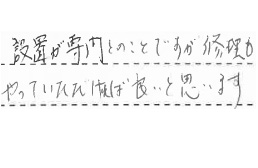 設置が専門とのことですが修理も
やっていただければ良いと思います